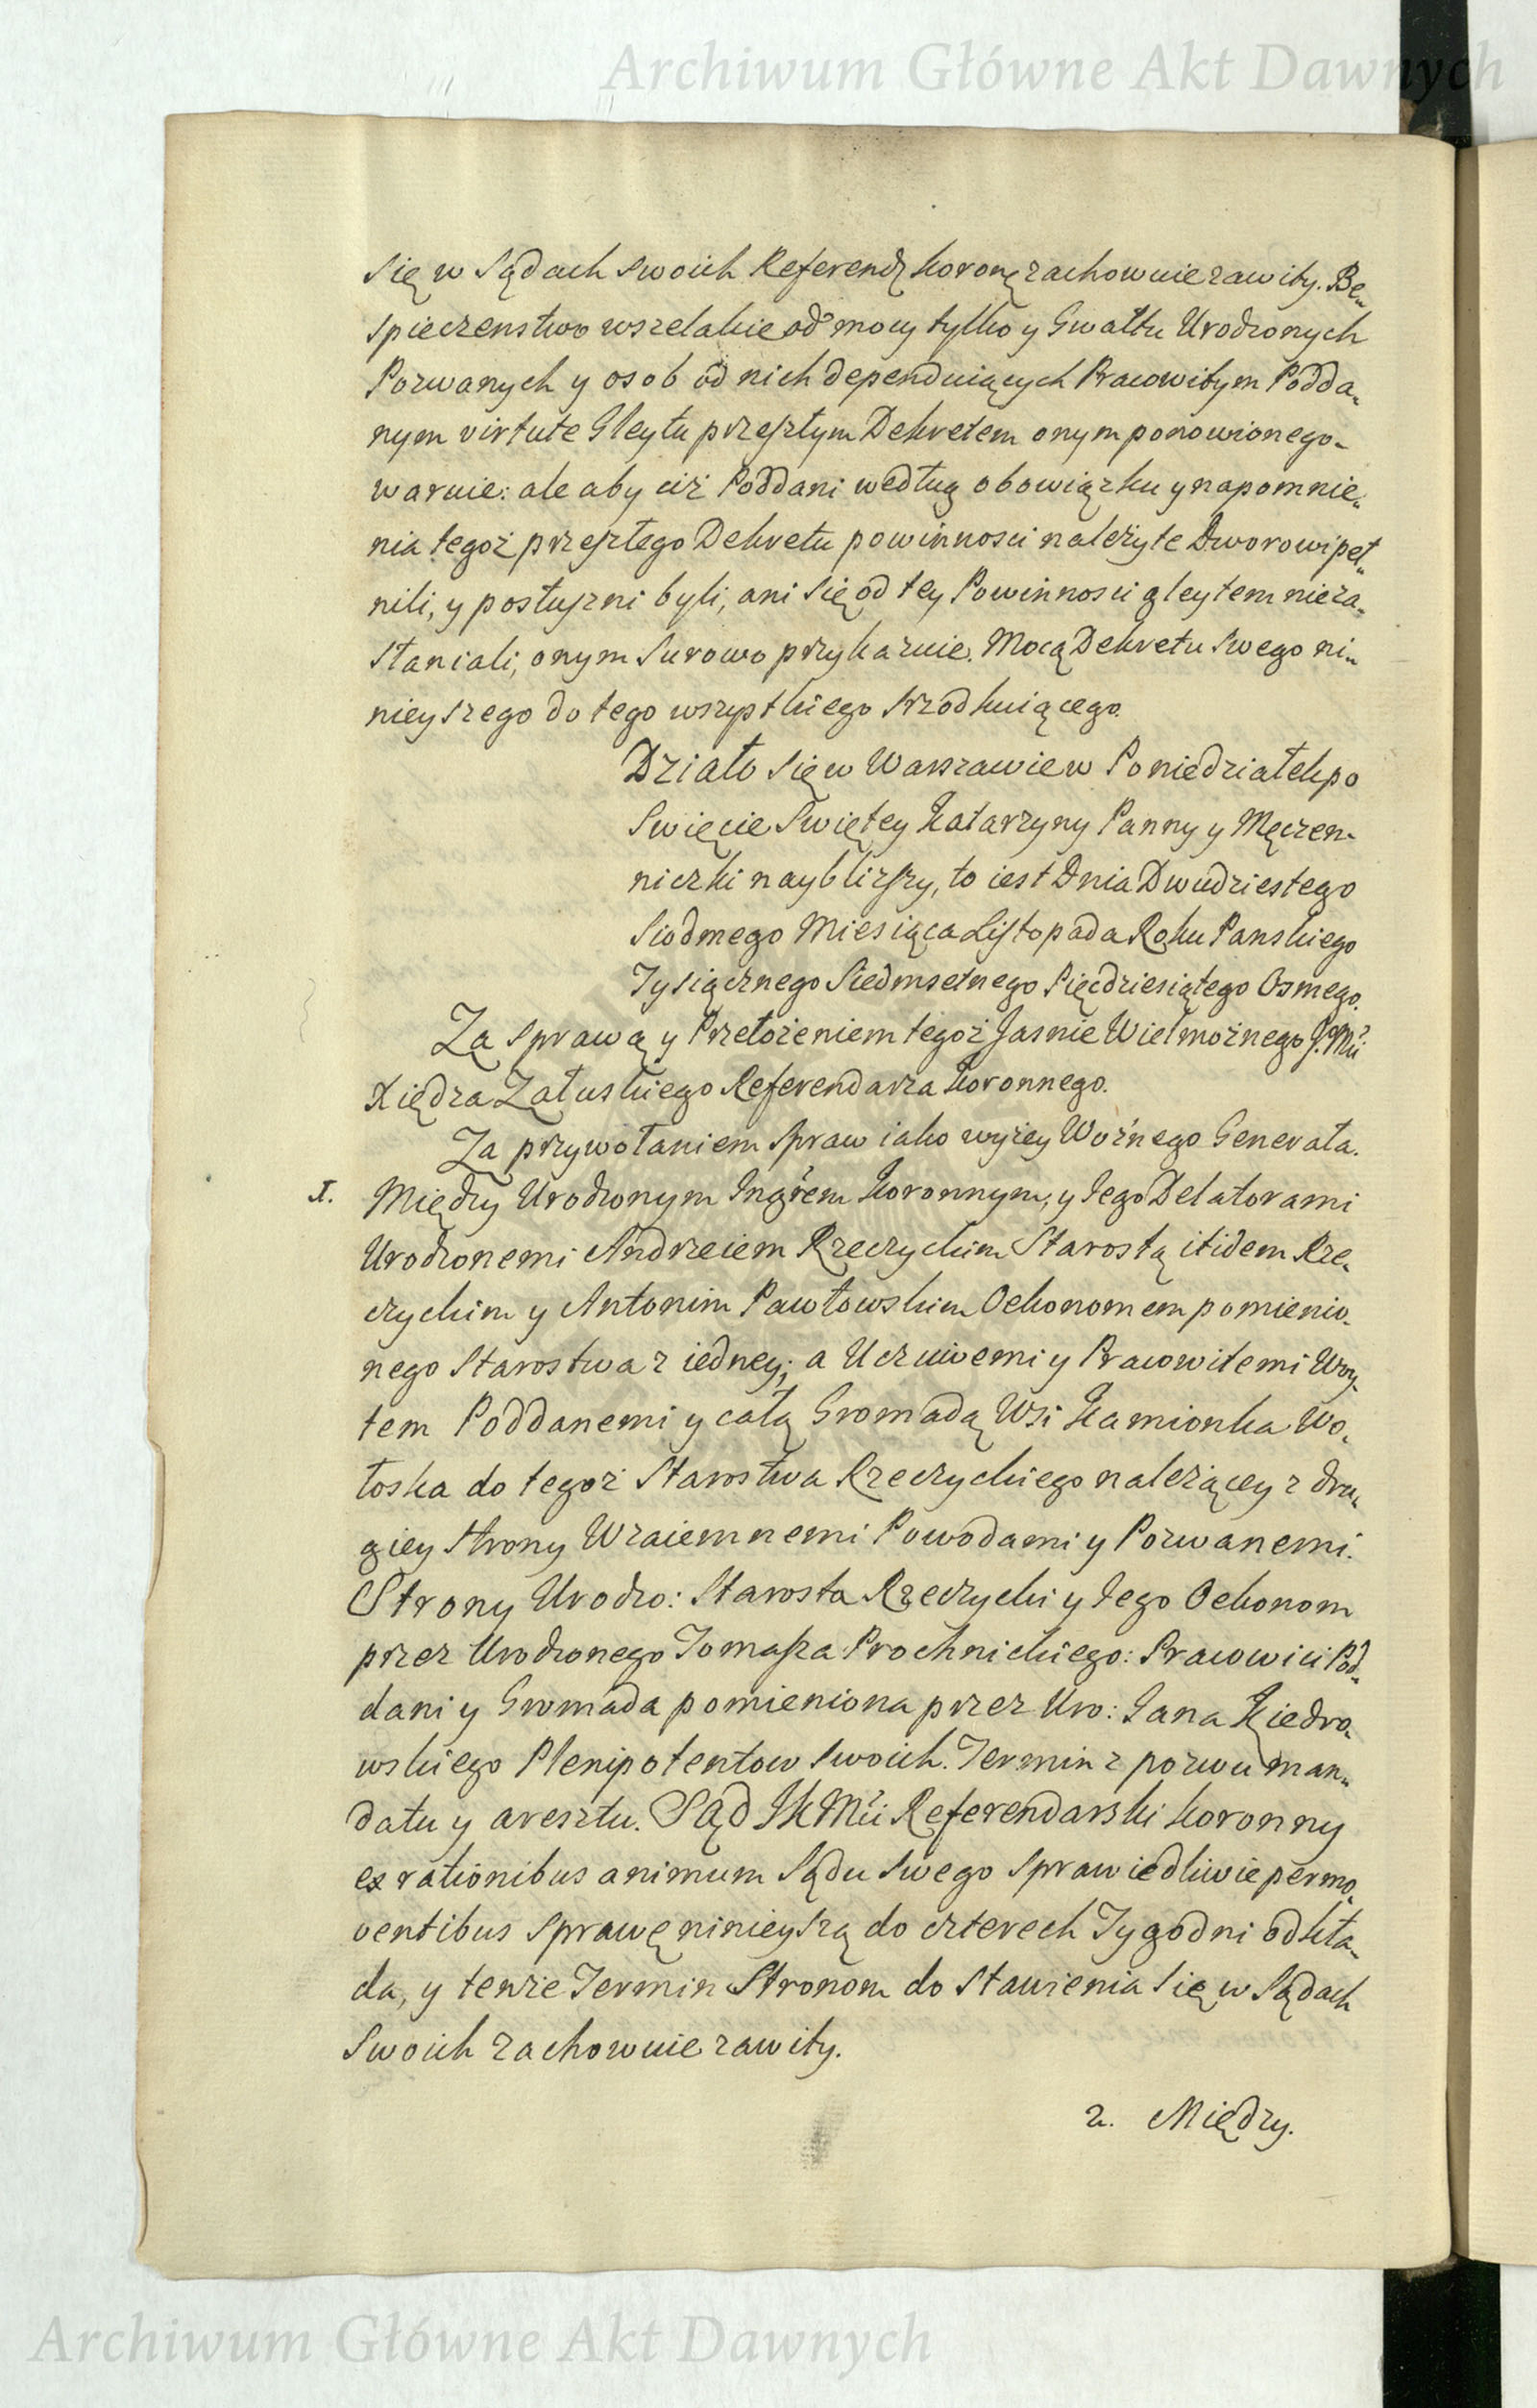 Archiwum Główne Akt Dawnych
się w Sądach swoich Referend: Koron: zachowuie zawity. Be„
spieczenstwo wszelakie od mocy tylko y Gwałtu Urodzonych
Pozwanych y osob od nich dependuiących Pracowitym Podda„
nym virtute Gleytu przeszłym Dekretem onym ponowionego„
waruie: ale aby ciż Poddani według obowiązku y napomnie„
nia tegoż przeszłego Dekretu powinnosci należyte Dworowi peł„
nili, y posłuszni byli, ani się od tey Powinnosci gleytem nieza„
staniali, onym surowo przykazuie. Mocą Dekretu swego ni„
nieyszego do tego wszystkiego srzodkuiącego.
Działo się w Warszawie w Poniedziałek po
Swięcie Swiętey Katarzyny Panny y Męczen„
niczki nayblizszy, to iest Dnia Dwudziestego
Siodmego Miesiąca Listopada Roku Panskiego
Tysiącznego Siedmsetnego Pięcdziesiątego Osmego.
Za sprawą y Przełożeniem tegoż Jasnie Wielmożnego JoMci
Xiędza Załuskiego Referendarza Koronnego.
Za przywołaniem spraw iako wyżey Woźnego Generała.
1. Między Urodzonym Ingrem Koronnym, y Jego Delatorami
Urodzonemi Andrzeiem Rzeczyckim Starostą itidem Rze„
czyckim y Antonim Pawłowskim Oekonomem pomienio„
nego Starostwa z iedney; a Uczciwemi y Pracowitemi Wóy„
tem Poddanemi y całą Gromadą Wsi Kamionka Wo„
łoska do tegoż Starostwa Rzeczyckiego należącey z dru„
giey strony Wzaiemnemi Powodami y Pozwanemi.
Strony Urodzo: Starosta Rzeczycki y Jego Oekonom
przez Urodzonego Tomasza Prochnickiego: Pracowici Pod„
dani y Gromada pomieniona przez Uro: Jana Kiedro„
wskiego Plenipotentow swoich. Termin z pozwu man„
datu y aresztu. Sąd JKMci Referendarski Koronny
ex rationibus animum Sądu swego sprawiedliwie permo„
ventibus sprawę ninieyszą do czterech Tygodni odkła„
da, y tenże Termin Stronom do stawienia się w Sądach
swoich zachowuie zawity.
2. Między.
Archiwum Główne Akt Dawnych